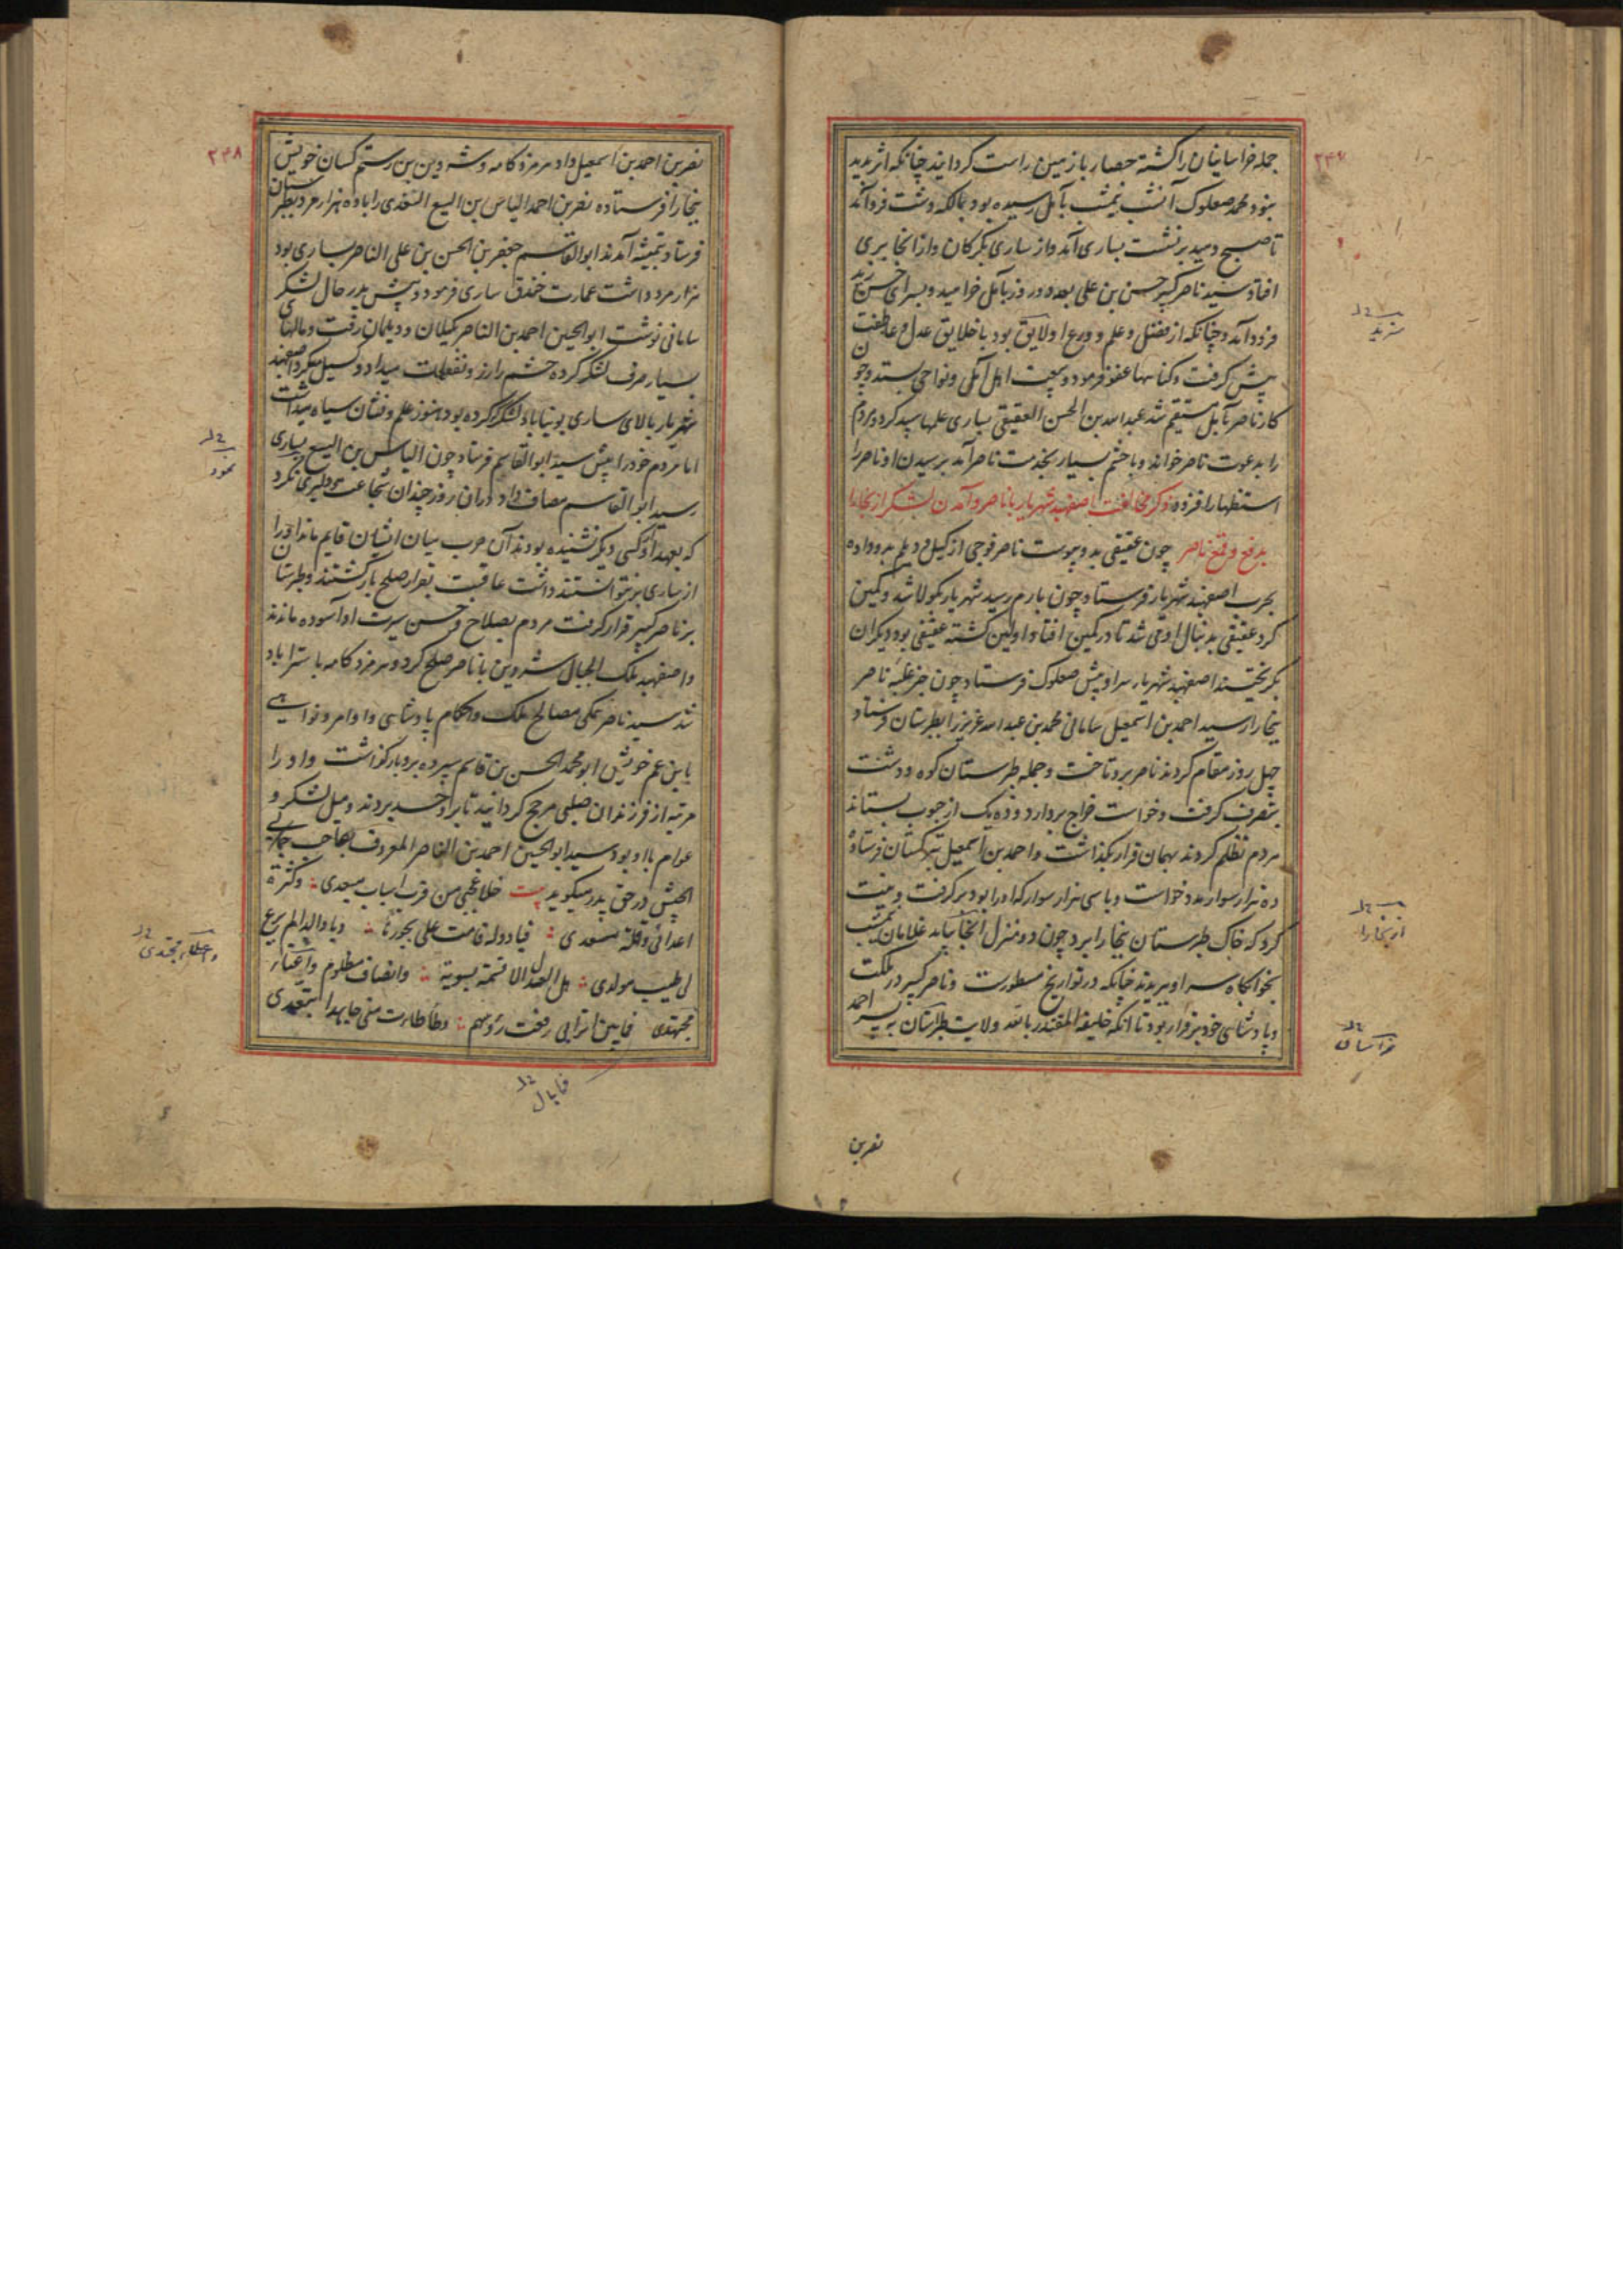 ۲۴۷
جمله خراسانیان را کشته حصار با زمین راست کردانید چنانکه اثر پدید
نبود و محمد صعلوک آنشب نیمشب بآمل رسیده بود بمالکه دشت فرود آمد
تا صبح دمید برنشت بساری آمد و از ساری بکرکان و از انجا بری
افتاد سید ناصر کبیر حسن بن علی بعد دو روز بآمل خرامید و بسرای حسن زید
فرود آمد و چنانکه از فضل و علم و ورع او لایق بود با خلایق عدل و عاطفت
پیش کرفت و کناهها عفو فرمود و بیعت اهل آمل و نواحی بستد و چون
کار ناصر بآمل مستقیم شد عبد الله بن الحسن العقیقی بساری علمها سپید کرد و مردم
را بدعوت ناصر خواند و با حشم بسیار بخدمت ناصر آمد برسیدن او ناصر را
استظهار افزود ذکر مخالفت اصفهبد شهریار با ناصر و آمدن لشکر از بخارا
بدفع و قمع ناصر چون عقیقی بدو پیوست ناصر فوجی از کیل و دیلم بدو داده
بحرب اصفهبد شهریار فرستاد چون بارم رسید شهریار بکولا شد و کمین
کرد عقیقی بدنبال او می شد تا در کمین افتاد و اولین کشته عقیقی بود و دیکران
بکریختند اصفهبد شهریار سر او پیش صعلوک فرستاد چون خبر غلبه ناصر
بخارا رسید احمد بن اسمعیل سامانی محمد بن عبد الله عزیز را بطبرستان فرستاد
چهل روز مقام کردند ناصر برو تاخت و جمله طبرستان کوه و دشت
بتصرف کرفت و خواست خراج بردارد و ده یک از حبوب بستاند
مردم تظلم کردند بهمان قرار بکذاشت و احمد بن اسمعیل بترکستان فرستاده
ده هزار سوار مدد خواست و با سی هزار سوار که او را بود برکرفت و نیت
کرد که خاک طبرستان ببخارا برد چون دو منزل آنجا بیامد غلامان نیمشب
بخوابکاه سر او ببریدند چنانکه در تواریخ مسطورست و ناصر کبیر در ملکت
و پادشاهی خود برقرار بود تا آنکه خلیفه المقتدر بالله ولایت طبرستان به پسر احمد
نصر بن
خراسان
از بخارا
۲۴۸
نصر بن احمد بن اسمعیل داد هرمزد کامه و شروین بن رستم کسان خویش
ببخارا فرستاده نصر بن احمد الیاس بن الیسع السغدی را با ده هزار مرد بطبرستان
فرستاد بتمیشه آمدند ابو القاسم جعفر بن الحسن بن علی الناصر بساری بود
هزار مرد داشت عمارت خندق ساری فرمود و پیش پدر حال لشکر
سامانی نوشت ابو الحسین احمد بن الناصر بکیلان و دیلمان رفت و مالهای
بسیار صرف لشکر کرده حشم را رزق و نفقات میداد و کسیل میکرد اصفهبد
شهریار بالای ساری لشکرکاه کرده بود هنوز علم و نشان سیاه میداشت
اما مردم خود را پیش سید ابو القاسم فرستاد چون الیاس بن الیسع بساری
رسید ابو القاسم مصاف داد و دران روز چندان شجاعت و دلیری کرد
که بعهد او کسی دیکر نشنیده بودند آن حرب میان ایشان قایم ماند او را
از ساری بر نتوانستند داشت عاقبت بقرار صلح بازکشتند و طبرستان
بر ناصر کبیر قرار کرفت مردم بصلاح و حسن سیرت او آسوده ماندند
و اصفهبد ملک الجبال شروین با ناصر صلح کرد و هرمزد کامه باستراباد
شد سید ناصر همکی مصالح ملک و احکام پادشاهی و اوامر و نواهی
بابن عم خویش ابو محمد الحسن بن قاسم سپرده بدو بازکذاشت و او را
مرتبه از فرزندان صلبی مرجح کردانید تا برو حسد بردند و میل لشکر و
عوام با او بود سید ابو الحسین احمد بن الناصر المعروف بصاحب
الجیش در حق پدر میکوید بیت خلا عجبی من قرب اسباب مبعدی وکثرة
اعدائی وقلة مسعدی فیا دولة قامت علی بجورها ویا والدا لم یرع
لی طیب مولدی هل العدل الا قسمة بسویة وانصاف مظلوم
مجتهدی